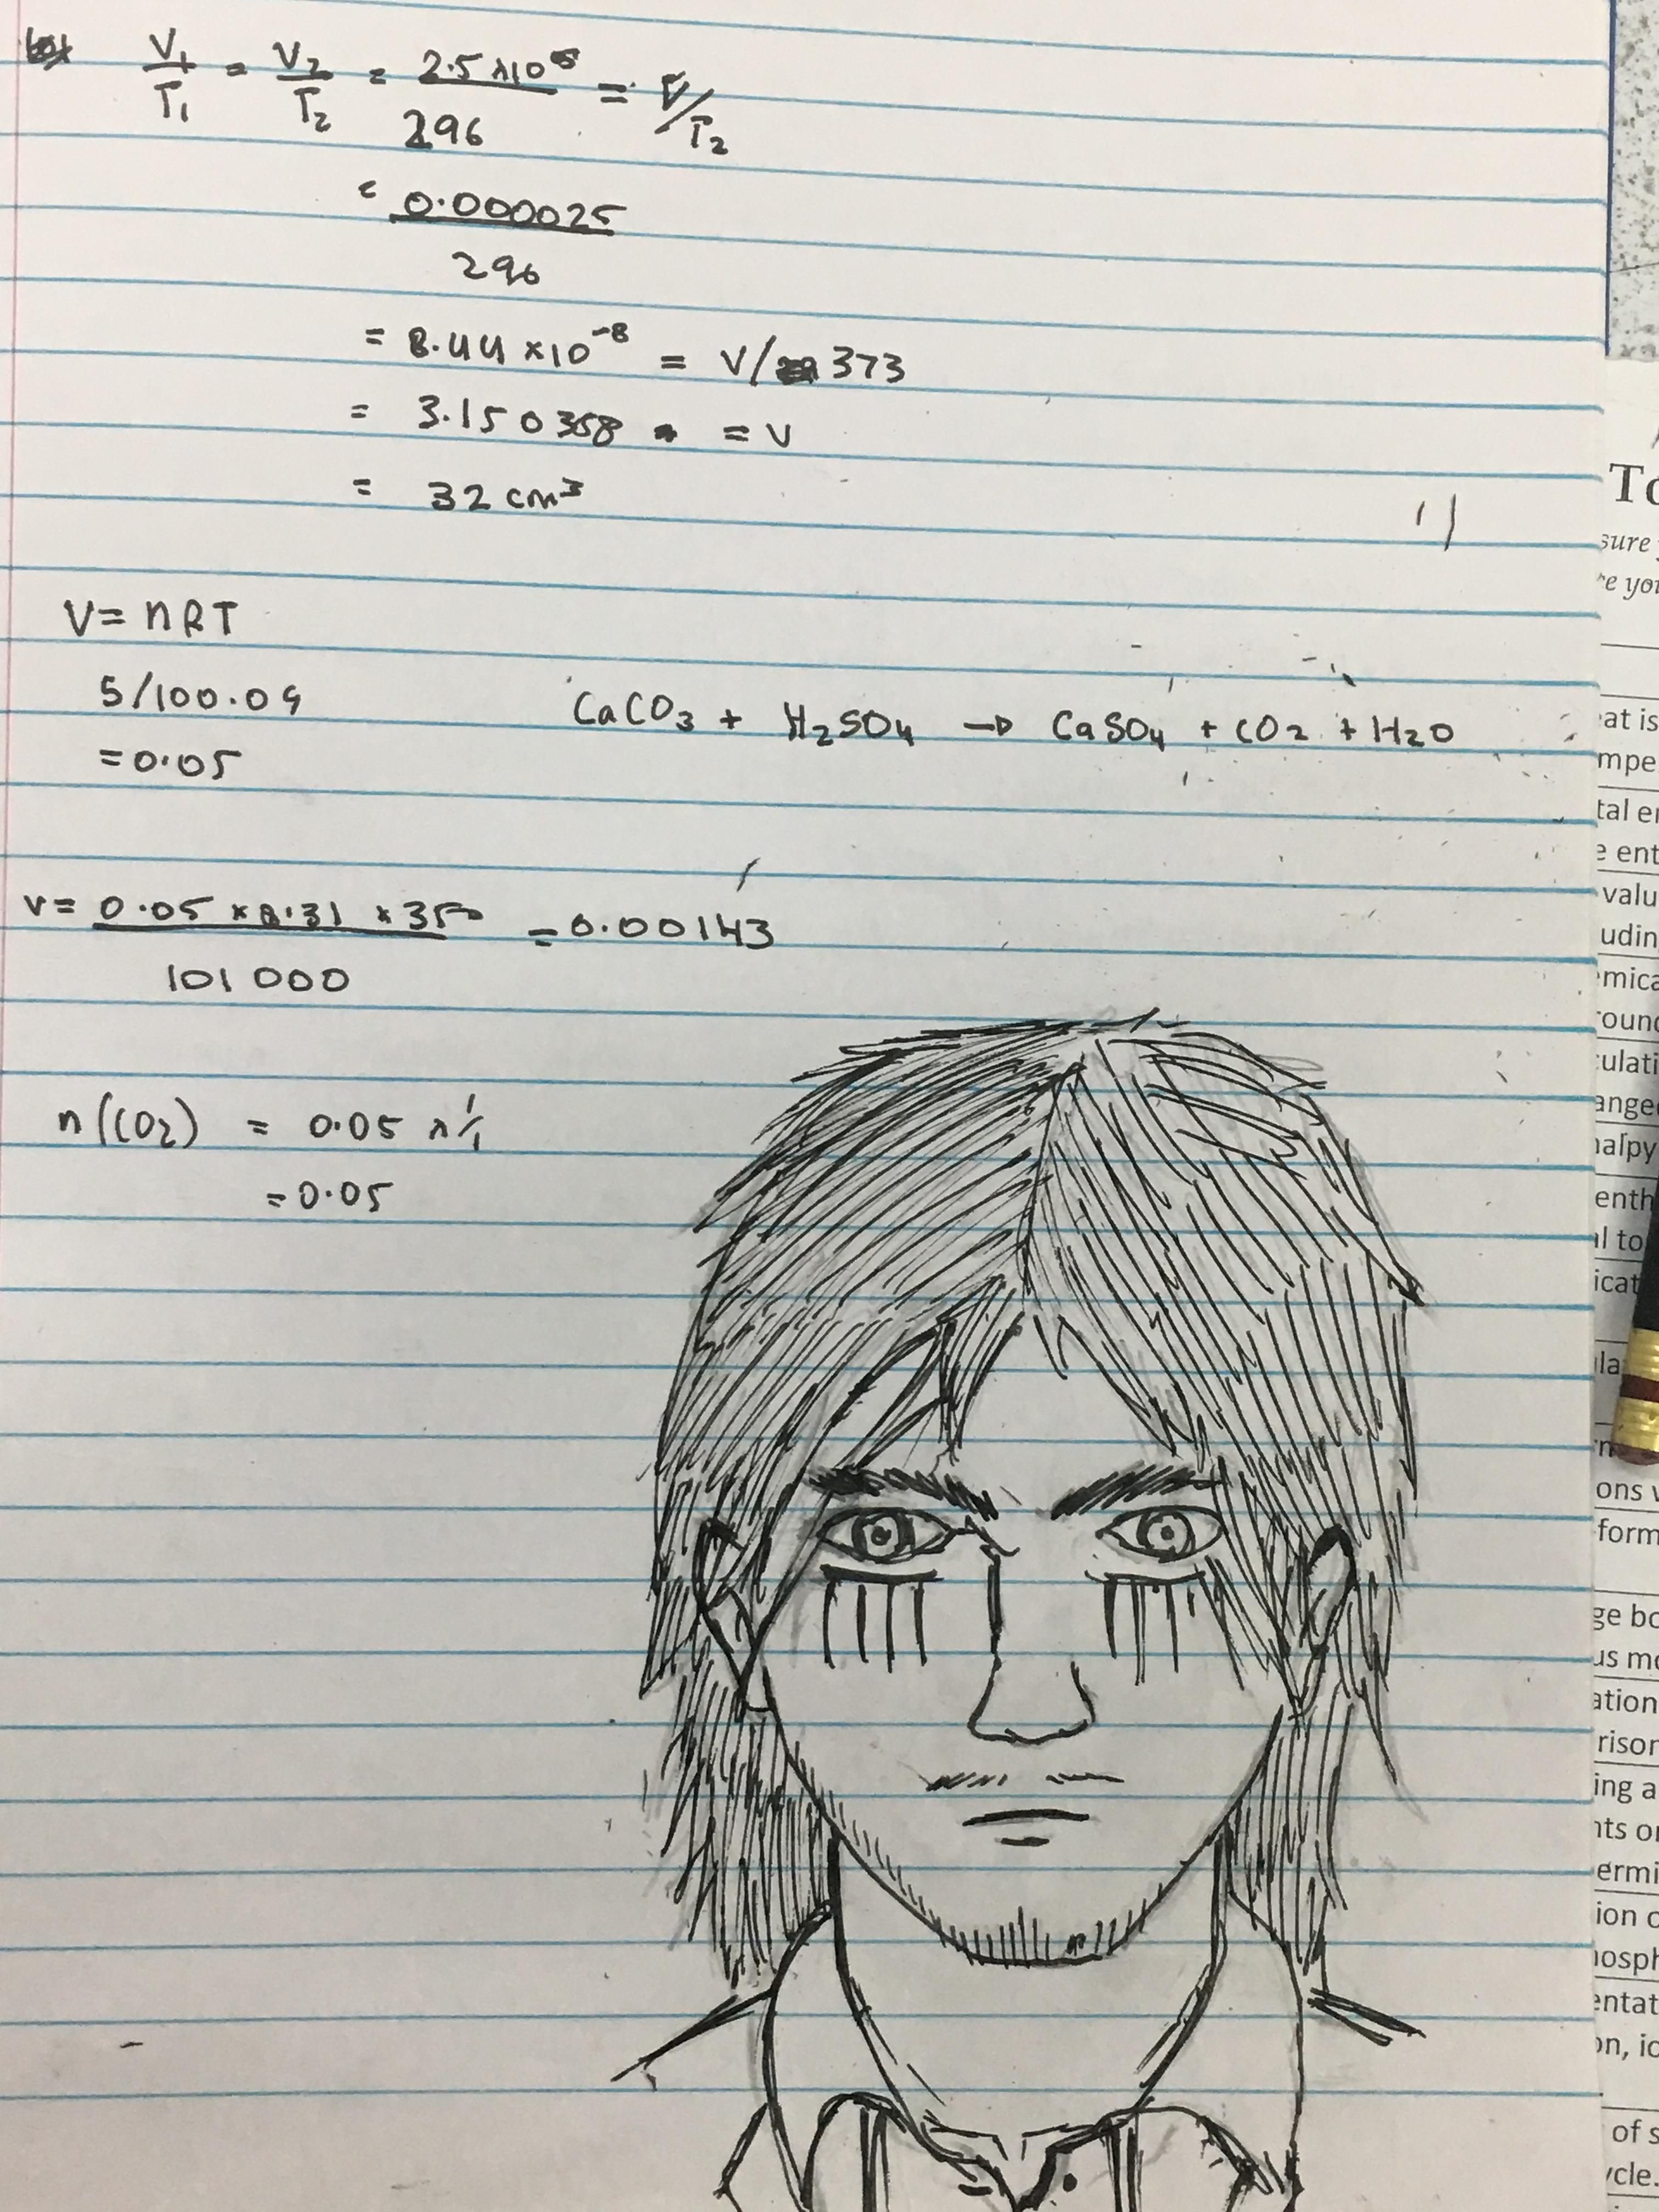 V₁/T₁ = V₂/T₂ = 2.5 x10⁻⁵/296 = V/T₂
= 0.000025/296
= 8.44 x10⁻⁸ = V/373
= 3.150358 = V
= 32 cm³
V= nRT
5/100.09
=0.05
CaCO₃ + H₂SO₄ → CaSO₄ + CO₂ + H₂O
V= 0.05 x 8.31 x 350/101 000 = 0.00143
n(CO₂) = 0.05 x 1/1
=0.05
To
sure
re you
at is
mpe
tal en
e ent
valu
udin
emica
roun
culati
ange
halpy
enth
al to
icat
la
ons v
form
ge bo
us mo
ation
rison
ing a
nts o
ermi
ion o
nosph
entat
on, io
of s
ycle.